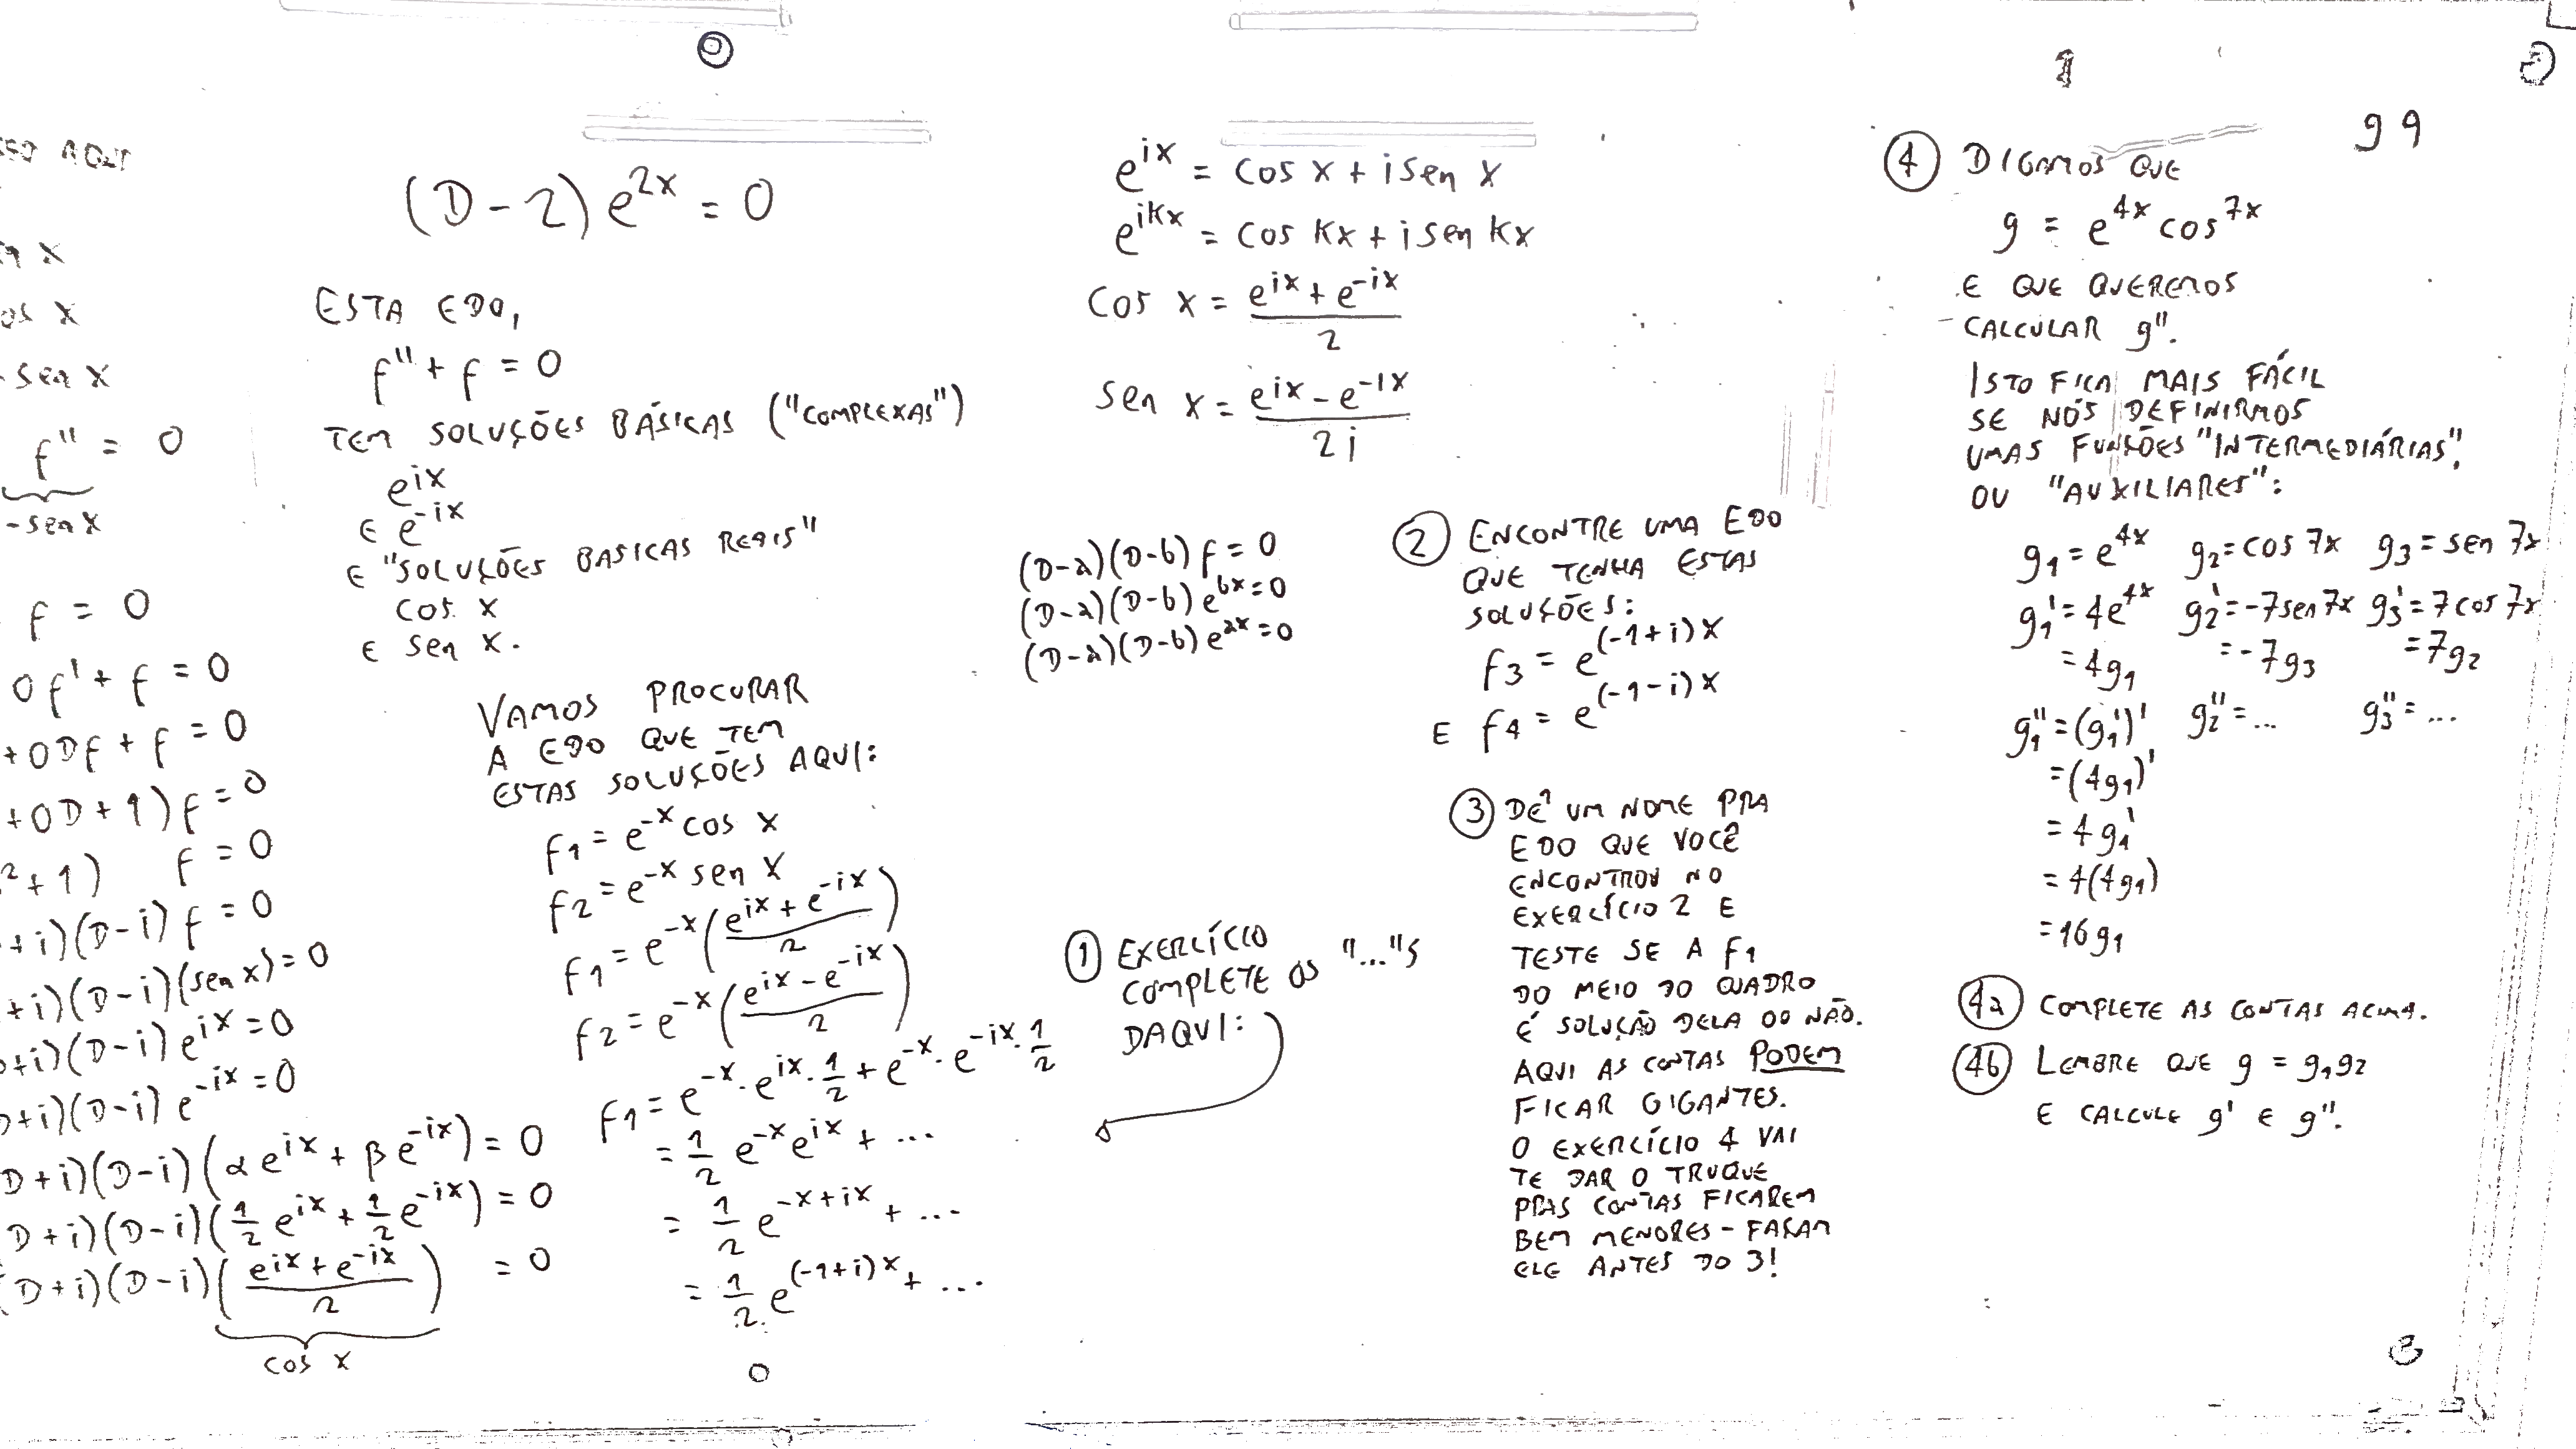 AQUI
x
x
sen x
f'' = 0
-sen x
f = 0
0f' + f = 0
+0Df + f = 0
+0D + 1)f = 0
²+1) f = 0
+i)(D-i) f = 0
+i)(D-i)(sen x) = 0
+i)(D-i) e^{ix} = 0
+i)(D-i) e^{-ix} = 0
D+i)(D-i)(αe^{ix} + βe^{-ix}) = 0
D+i)(D-i)(1/2 e^{ix} + 1/2 e^{-ix}) = 0
D+i)(D-i)((e^{ix} + e^{-ix})/2) = 0
cos x
(D-2) e^{2x} = 0
ESTA EDO,
f'' + f = 0
TEM SOLUÇÕES BÁSICAS ("COMPLEXAS")
e^{ix}
E e^{-ix}
E "SOLUÇÕES BASICAS REAIS"
cos x
E sen x.
VAMOS PROCURAR
A EDO QUE TEM
ESTAS SOLUÇÕES AQUI:
f₁ = e^{-x} cos x
f₂ = e^{-x} sen x
f₁ = e^{-x}((e^{ix} + e^{-ix})/2)
f₂ = e^{-x}((e^{ix} - e^{-ix})/2)
f₁ = e^{-x}·e^{ix}·1/2 + e^{-x}·e^{-ix}·1/2
= 1/2 e^{-x}e^{ix} + ...
= 1/2 e^{-x+ix} + ...
= 1/2 e^{(-1+i)x} + ...
e^{ix} = cos x + i sen x
e^{ikx} = cos kx + i sen kx
cos x = (e^{ix} + e^{-ix})/2
sen x = (e^{ix} - e^{-ix})/2i
(D-a)(D-b) f = 0
(D-a)(D-b) e^{bx} = 0
(D-a)(D-b) e^{ax} = 0
① EXERCÍCIO
COMPLETE OS "..."S
DAQUI:
② ENCONTRE UMA EDO
QUE TENHA ESTAS
SOLUÇÕES:
f₃ = e^{(-1+i)x}
E f₄ = e^{(-1-i)x}
③ DÊ UM NOME PRA
EDO QUE VOCÊ
ENCONTROU NO
EXERCÍCIO 2 E
TESTE SE A f₁
DO MEIO DO QUADRO
É SOLUÇÃO DELA OU NÃO.
AQUI AS CONTAS PODEM
FICAR GIGANTES.
O EXERCÍCIO 4 VAI
TE DAR O TRUQUE
PRAS CONTAS FICAREM
BEM MENORES - FAÇAM
ELE ANTES DO 3!
99
④ DIGAMOS QUE
g = e^{4x} cos^{7x}
E QUE QUEREMOS
CALCULAR g''.
ISTO FICA MAIS FÁCIL
SE NÓS DEFINIRMOS
UMAS FUNÇÕES "INTERMEDIÁRIAS",
OU "AUXILIARES":
g₁ = e^{4x} g₂ = cos 7x g₃ = sen 7x
g₁' = 4e^{4x} g₂' = -7sen 7x g₃' = 7cos 7x
= 4g₁ = -7g₃ = 7g₂
g₁'' = (g₁')' g₂'' = ... g₃'' = ...
= (4g₁)'
= 4g₁'
= 4(4g₁)
= 16g₁
4a COMPLETE AS CONTAS ACIMA.
4b LEMBRE QUE g = g₁g₂
E CALCULE g' E g''.